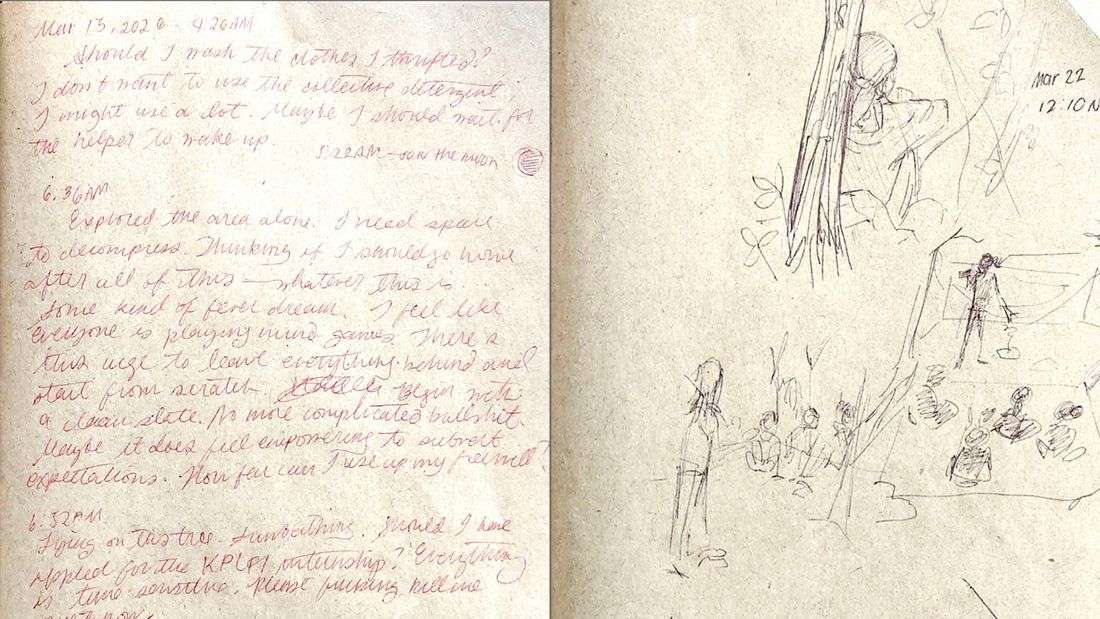 Mar 13, 2026 - 4:26AM
Should I wash the clothes I thrifted?
I don't want to use the collective detergent
I might use a lot. Maybe I should wait for
the helper to wake up.
5:22AM - saw the moon
6:36AM
Explored the area alone. I need space
to decompress. Thinking if I should go home
after all of this — whatever this is
some kind of fever dream. I feel like
everyone is playing mind games. There's
this urge to leave everything behind and
start from scratch. Begin with
a clean slate. No more complicated bullshit.
Maybe it does feel empowering to subvert
expectations. How far can I use up my free will?
6:52AM
Lying on this tree. Sunbathing. Should I have
applied for the internship? Everything
is time sensitive. Please fucking kill me
right now.
Mar 22
12:10N